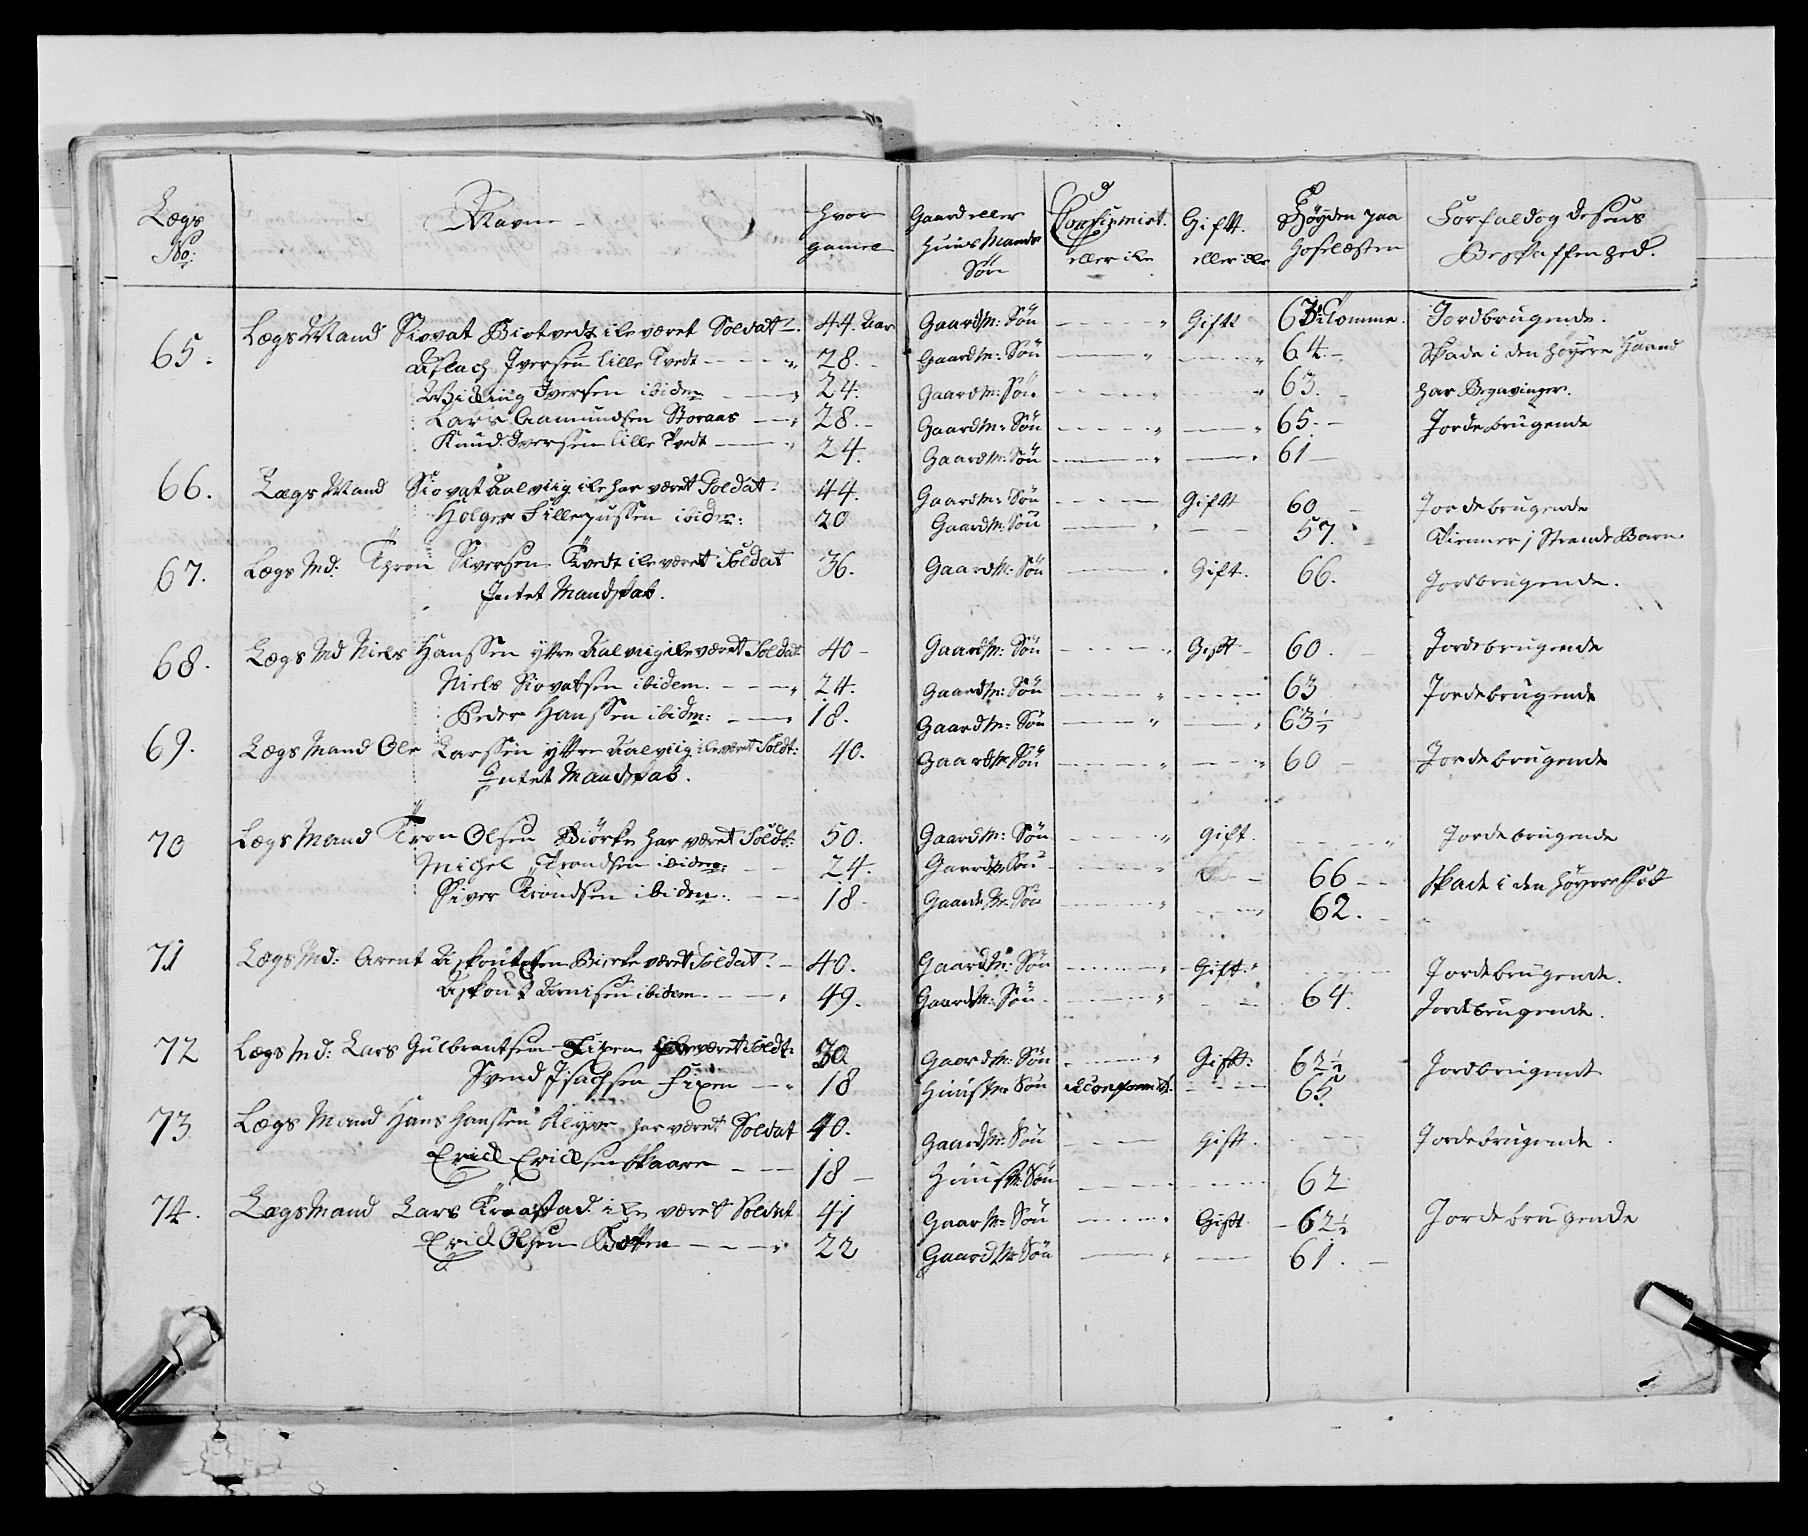 Lægs No: Navne hvor gamel Gaard eller Huus Mands Søn Confirmirt eller ike Gift eller ike Høyden paa Hoselæsten Forfald og deſsens Beskaffenhed.
65. Lægs Mand Siovat Biotvedt ike været Soldat 44 Aar Gaardm: Søn — " Gift 63 Tomme. Jordbrugende.
Aslach Iversen lille Tvedt — " 28. Gaardm: Søn — " — " 64. Skade i den høyere Haand
Iversen ibidem — " 24. Gaardm: Søn — " — " 63. har Begavinger.
Lars Aamundsen Storaas — " 28. Gaardm: Søn — " — " 65. Jordebrugende
Knud Iverssen lille Tvedt — " 24. Gaardm: Søn — " — " 61
66. Lægs Mand Siovat Aalviig ike har været Soldat. 44. Gaardm: Søn — Gift 60 Jordebrugende
Holger ibidem: 20 Gaardm: Søn — " — 57. Tienner i Strandebarm
67. Lægs Md: Thron Siversen Tvedt ike været Soldat 36. Gaardm: Søn — Gift. 66. Jordbrugende.
Intet Mandskab.
68. Lægs Md Niels Hanssen yttre Aalviig ike været Soldat 40 Gaardm: Søn — " Gift 60. Jordebrugende
Niels Siovatsen ibidem. — " 24. Gaardm: Søn — " — 63 Jordebrugende
Peder Hanssen ibidem: — 18. Gaardm: Søn — " — " 63½
69. Lægs Mand Ole Larssen yttre Aalviig ike været Soldt: 40. Gaardm Søn — " — " 60 Jordebrugende
Intet Mandskab.
70 Lægs Mand Tron Olsen Biörke har været Soldt: 50. Gaardm: Søn — " Gift. — " Jordebrugende
Michel Trondsen ibidem: — 24. Gaardm: Søn — " — 66 Skade i den høyre Fod
Siver Trondsen ibidem: — 18. Gaardm: Søn — " — " 62.
71 Lægs Md: Arent Biørke været Soldat. 40. Gaardm: Søn — " Gift. — Jordebrugende.
Arnisen ibidem. — " 49. Gaardm: Søn — " — 64. Jordebrugende.
72 Lægs Md: Lars Gulbrantsen Fixen været Soldt: 30 Gaardm: Søn — " Gift: 62½ Jordbrugende
Svend Isachsen Fixen — " 18 Huusm: Søn — 65
73 Lægs Mand Hans Hanssen har været Soldat 40. Gaardm: Søn — Gift. — Jordebrugende.
Erick Ericksen Skaare — 18 Huusm: Søn — — 62
74. Lægs Mand Lars Traastad ike været Soldat 41 Gaarm: Søn — " Gift. 62½ Jordebrugende
Erick Olsen Botten — " 22 Gaardm: Søn — " — 61.